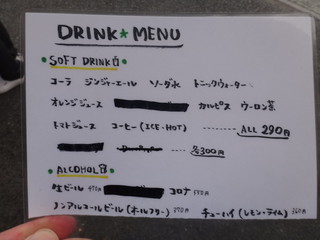 DRINK★MENU
SOFT DRINK
コーラ ジンジャーエール ソーダ水 トニックウォーター
オレンジジュース カルピス ウーロン茶
トマトジュース コーヒー(ICE・HOT) -------- ALL 290円
---- 各300円
ALCOHOL
生ビール 490円 コロナ
ノンアルコールビール(オールフリー) チューハイ(レモン・ライム)